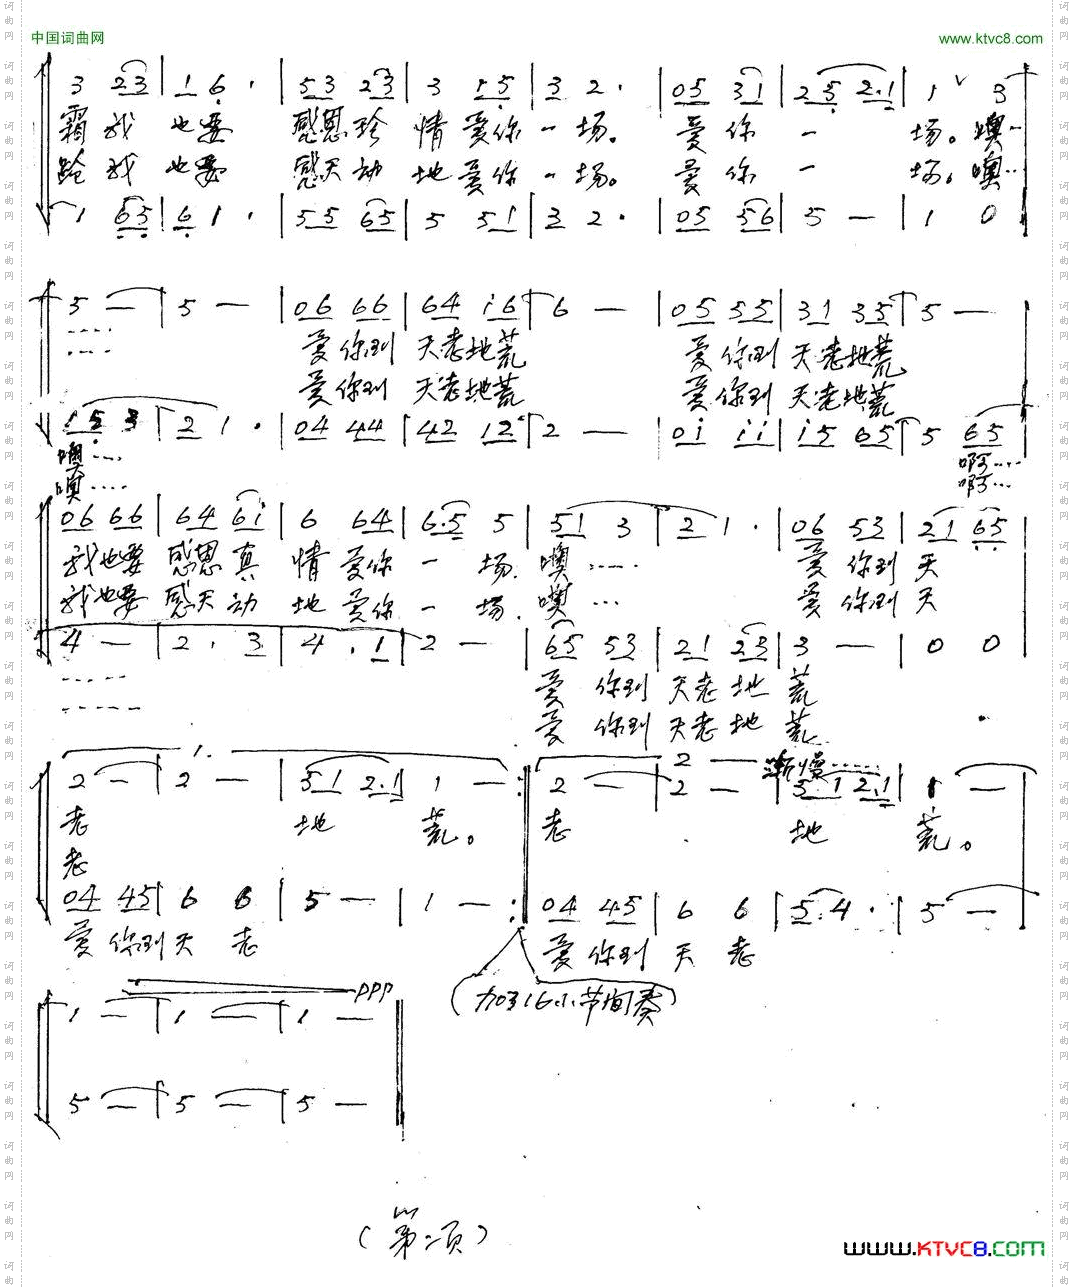 中国词曲网 www.ktvc8.com
3 23 | 1 6 · | 53 23 | 3 15 | 3 2 · | 05 31 | 25 2·1 | 1 ∨ 3
霜 我 也要 感恩珍 情 爱你 一 场。 爱 你 一 场。噢…
我 也要 感天动 地 爱你 一 场。 爱 你 一 场。噢…
1 65 | 6 1 · | 55 65 | 5 51 | 3 2 · | 05 56 | 5 — | 1 0
5 — | 5 — | 06 66 | 64 i6 | 6 — | 05 55 | 31 35 | 5 —
……
爱 你到 天老地荒 爱 你到 天老地荒
爱 你到 天老地荒 爱 你到 天老地荒
153 | 2 1 · | 04 44 | 42 12 | 2 — | 0i ii | i5 65 | 5 65
噢…… 啊……
噢…… 啊…
06 66 | 64 6i | 6 64 | 6·5 5 | 51 3 | 2 1 · | 06 53 | 21 65
我也要 感恩真 情 爱你 一 场. 噢…… 爱 你到 天
我也要 感天动 地 爱你 一 场. 噢… 爱 你到 天
4 — | 2 · 3 | 4 · 1 | 2 — | 65 53 | 21 23 | 3 — | 0 0
…… 爱 你到 天老 地 荒
…… 爱 你到 天老 地 荒
1. 2 渐慢……
2 — | 2 — | 51 2·1 | 1 — :| 2 — | 2 — | 5·1 2·1 | 1 —
老 地 荒。 老 地 荒。
老
04 45 | 6 6 | 5 — | 1 — :| 04 45 | 6 6 | 5·4 · | 5 —
爱 你到 天 老 爱 你到 天 老
ppp
(加16小节间奏)
1 — | 1 — | 1 —
5 — | 5 — | 5 —
(第二页)
www.KTVC8.com